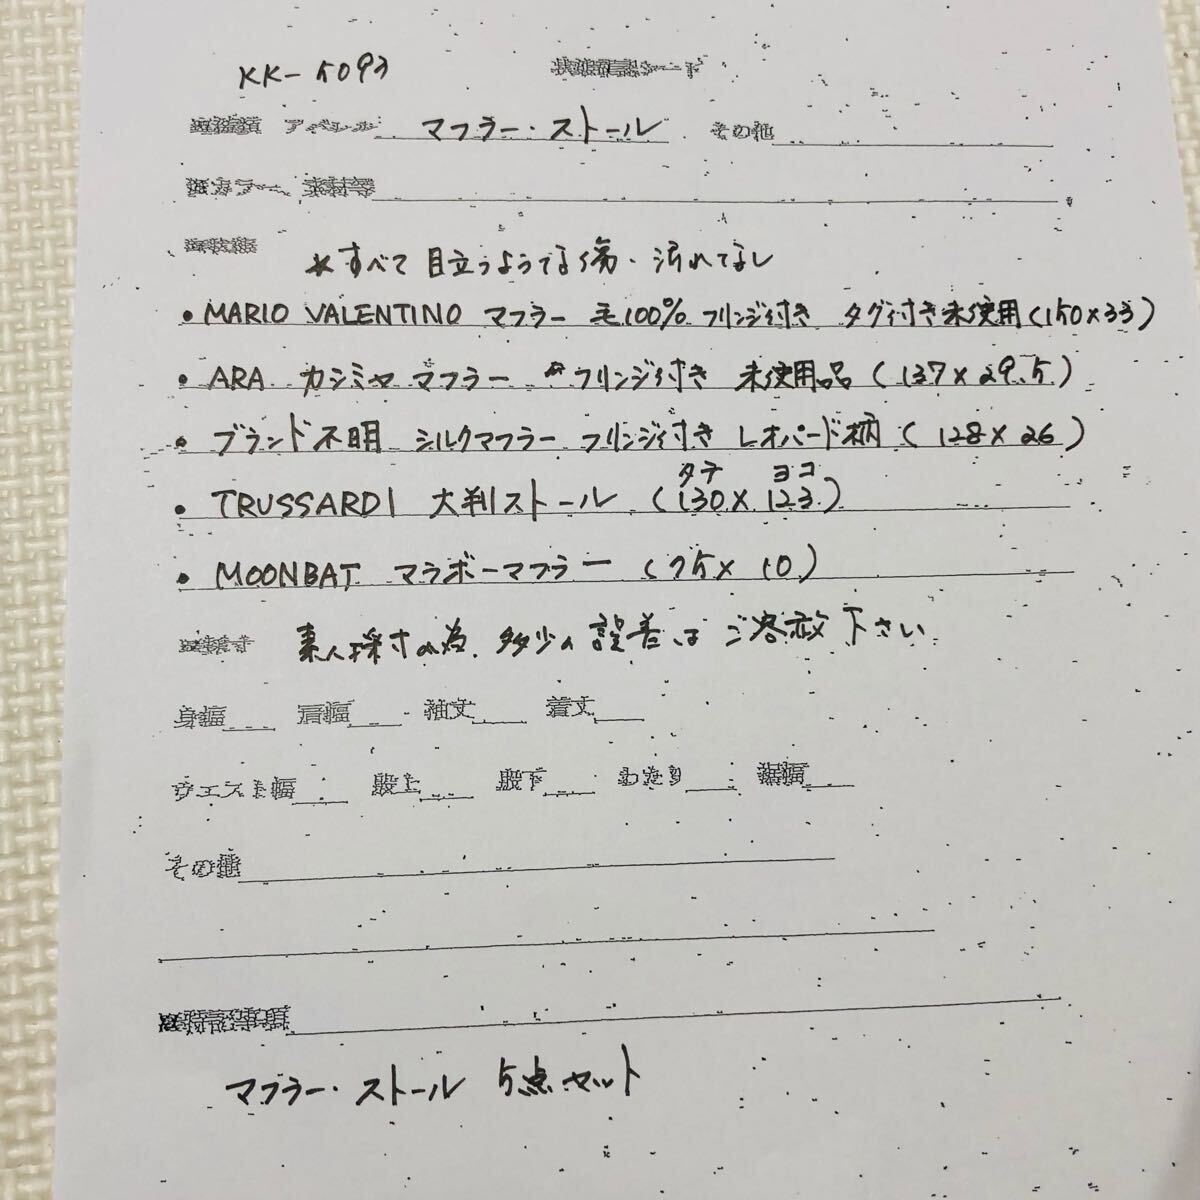 KK-5093
アパレル マフラー・ストール その他
カラー、素材等
*すべて目立つようてな傷・汚れてなし
• MARIO VALENTINO マフラー 毛100% フリンジ付き タグ付き未使用(150×33)
• ARA カシミヤマフラー フリンジ付き 未使用品(137×29.5)
• ブランド不明 シルクマフラー フリンジ付き レオパード柄(128×26)
タテ ヨコ
• TRUSSARDI 大判ストール(130×123)
• MOONBAT マラボーマフラー(75×10)
素人採寸の為、多少の誤差はご容赦下さい
身幅 肩幅 袖丈 着丈
ウエスト幅 股上 股下 わたり 裾幅
その他
特記事項
マフラー・ストール 5点セット